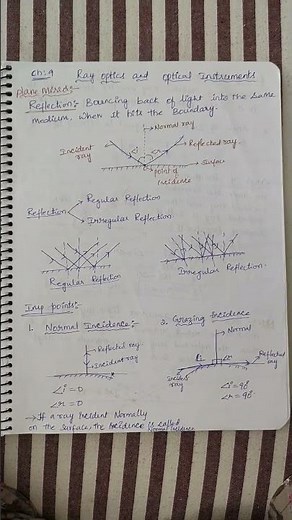 Ch:-9 Ray optics and optical Instruments
Plane Mirror:-
Reflection:- Bouncing back of light into the same
medium, when it hits the Boundary.
Normal ray
Incident ray
Reflected ray
Surface
point of Incidence
Reflection
Regular Reflection
Irregular Reflection
Regular Reflection
Irregular Reflection
Imp points:-
1. Normal Incidence:-
Reflected ray
Incident ray
∠i = 0
∠r = 0
→ If a ray incident Normally
on the surface, the incidence is called
normal incidence
2. Grazing Incidence
Normal
Reflected ray
Incident ray
∠i = 90°
∠r = 90°